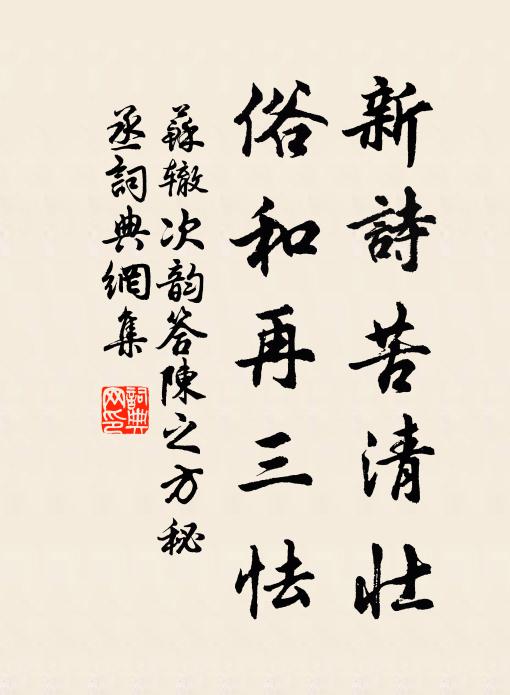 新詩苦清壯
俗和再三怯
蘇辙次韵答陳之方秘
丞詞典網集
詞典网印